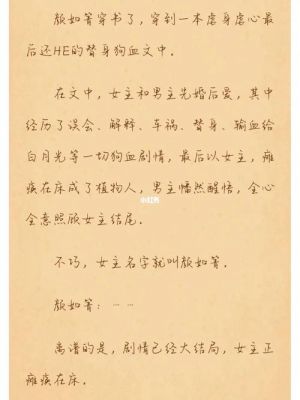 颜如箐穿书了，穿到一本虐身虐心最
后还HE的替身狗血文中。
在文中，女主和男主先婚后爱，其中
经历了误会、解释、车祸、替身、输血给
白月光等一切狗血剧情，最后以女主，瘫
痪在床成了植物人，男主幡然醒悟，全心
全意照顾女主结尾。
小红书
不巧，女主名字就叫颜如箐。
颜如箐：……
离谱的是，剧情已经大结局，女主正
瘫痪在床。